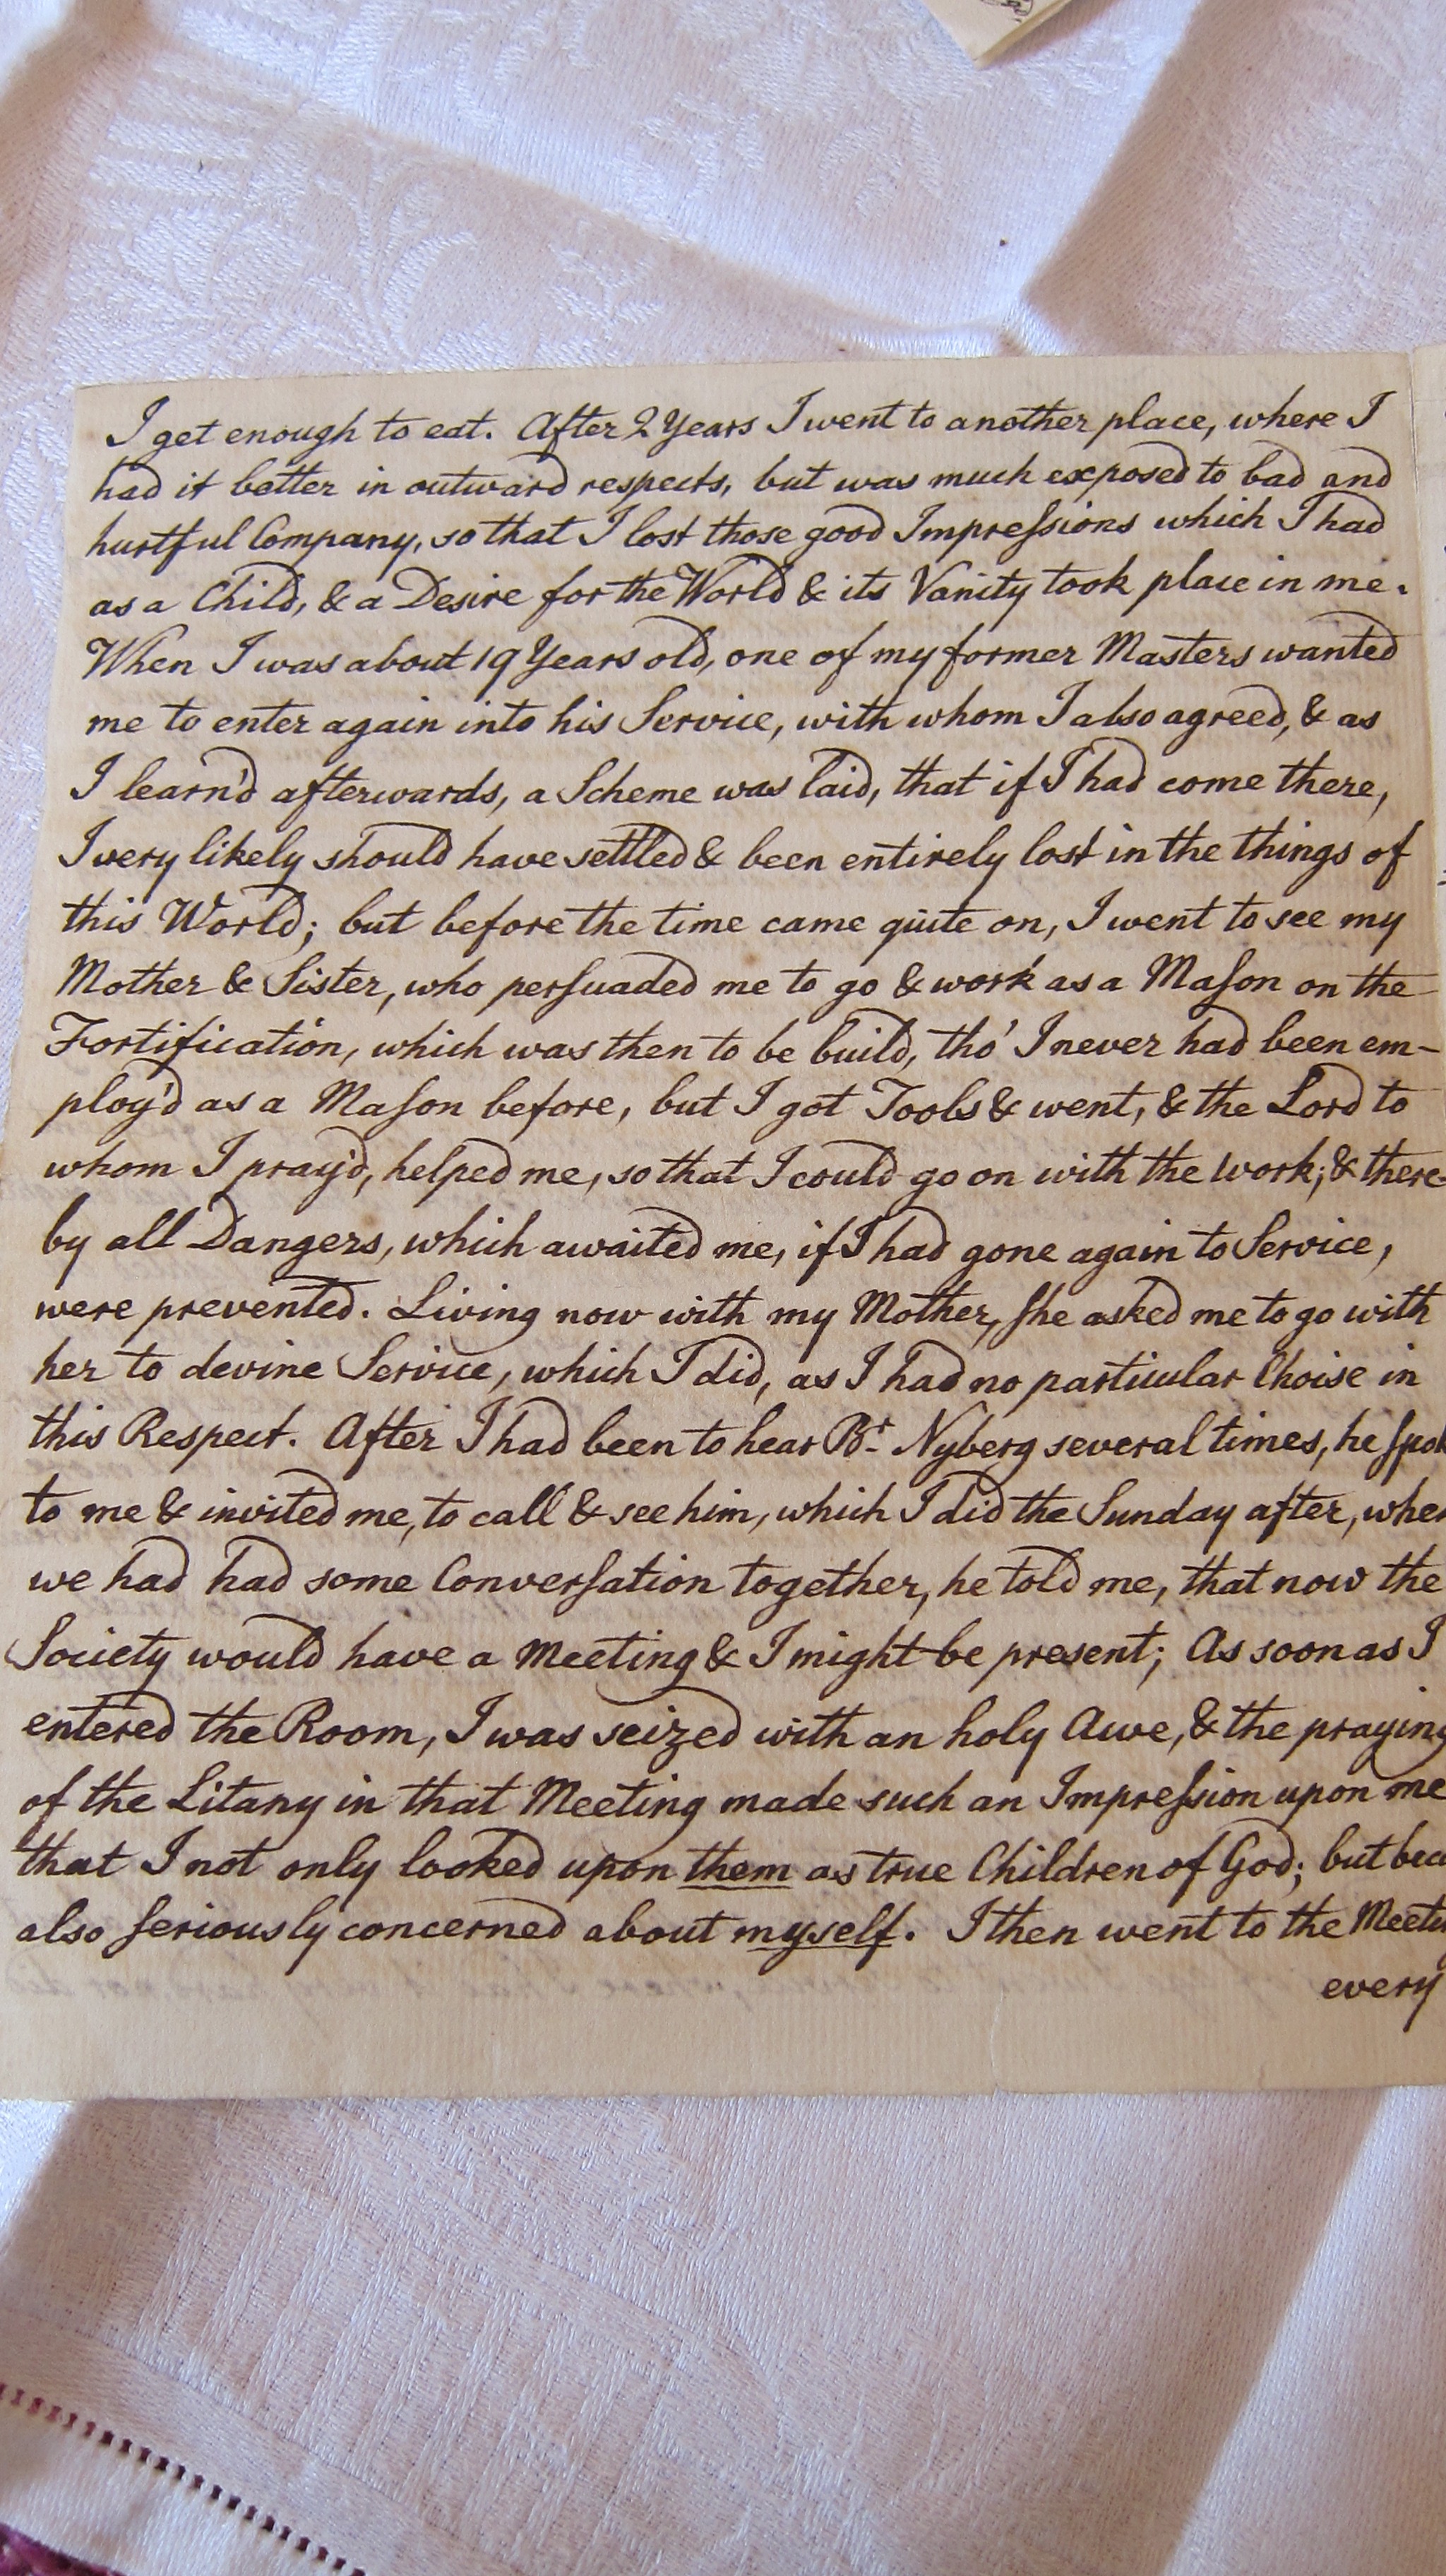 I get enough to eat. After 2 Years I went to another place, where I
had it better in outward respects, but was much exposed to bad and
hurtful Company, so that I lost those good Impreſsions which I had
as a Child, & a Desire for the World & its Vanity took place in me.
When I was about 19 Years old, one of my former Masters wanted
me to enter again into his Service, with whom I also agreed, & as
I learn'd afterwards, a Scheme was laid, that if I had come there,
I very likely should have settled & been entirely lost in the things of
this World; but before the time came quite on, I went to see my
Mother & Sister, who perſuaded me to go & work as a Maſon on the
Fortification, which was then to be build, tho' I never had been em-
ploy'd as a Maſon before, but I got Tools & went, & the Lord to
whom I pray'd, helped me, so that I could go on with the work; & there-
by all Dangers, which awaited me, if I had gone again to Service,
were prevented. Living now with my Mother, ſhe asked me to go with
her to devine Service, which I did, as I had no particular Choise in
this Respect. After I had been to hear Br. Nyberg several times, he ſpok
to me & invited me, to call & see him, which I did the Sunday after, when
we had had some Converſation together, he told me, that now the
Society would have a Meeting & I might be present; As soon as I
entered the Room, I was seized with an holy Awe, & the praying
of the Litany in that Meeting made such an Impreſsion upon me
that I not only looked upon them as true Children of God; but bec
also ſeriously concerned about myself. I then went to the Meetin
every